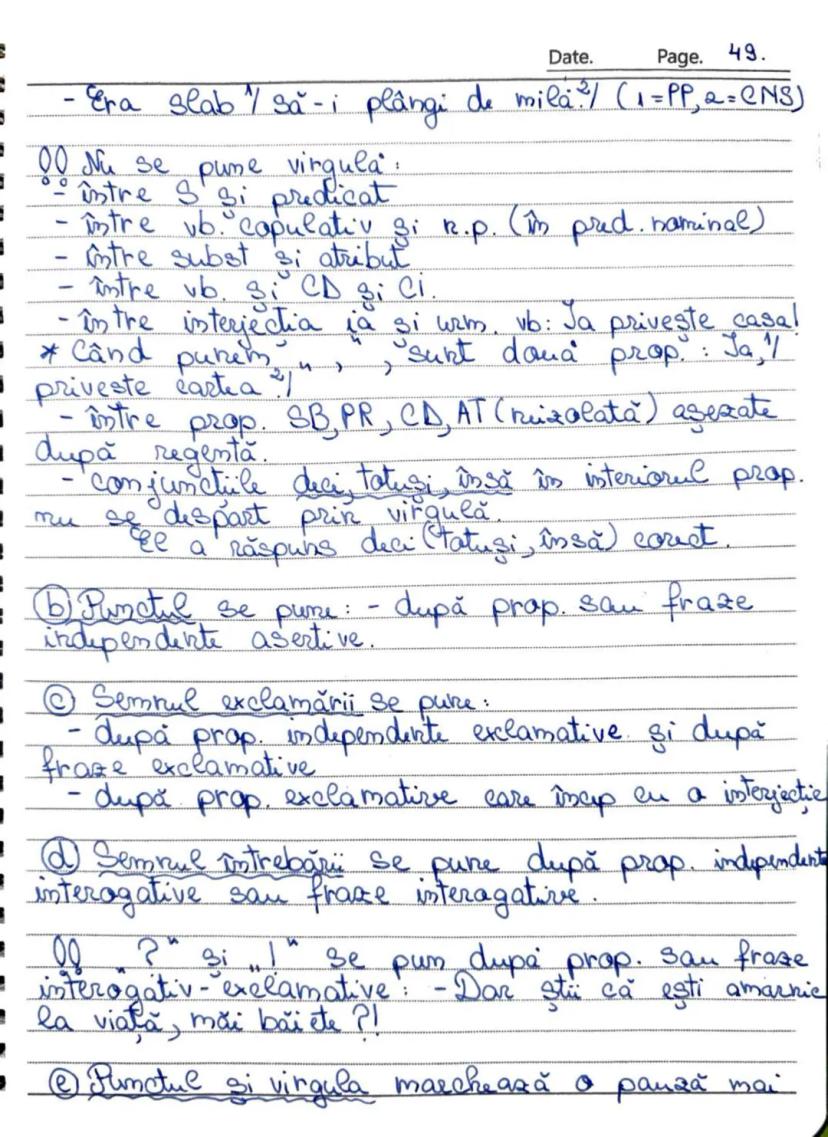 Date. Page. 49.
- Era slab 1/ să-i plângi de milă. 2/ (1=PP, 2=CNS)
!! Nu se pune virgulă:
- între S și predicat
- între vb. copulativ și n.p. (în pred. nominal)
- între subst și atribut
- între vb. și CD și Ci.
- între interjecția ia și urm. vb: Ia privește casa!
* Când punem „ , ” , sunt două prop. : Ia, 1/
privește cartea 2/!
- între prop. SB, PR, CD, AT (neizolată) așezate
după regentă.
- conjuncțiile deci, totuși, însă în interiorul prop.
nu se despart prin virgulă.
El a răspuns deci (totuși, însă) corect.
b) Punctul se pune: - după prop. sau fraze
independente asertive.
c) Semnul exclamării se pune:
- după prop. independente exclamative și după
fraze exclamative
- după prop. exclamative care încep cu o interjecție
d) Semnul întrebării se pune după prop. independente
interogative sau fraze interogative.
!! „?" și „!" se pun după prop. sau fraze
interogativ-exclamative: - Dar știi că ești amarnic
la viață, măi băiete ?!
e) Punctul și virgula marchează o pauză mai